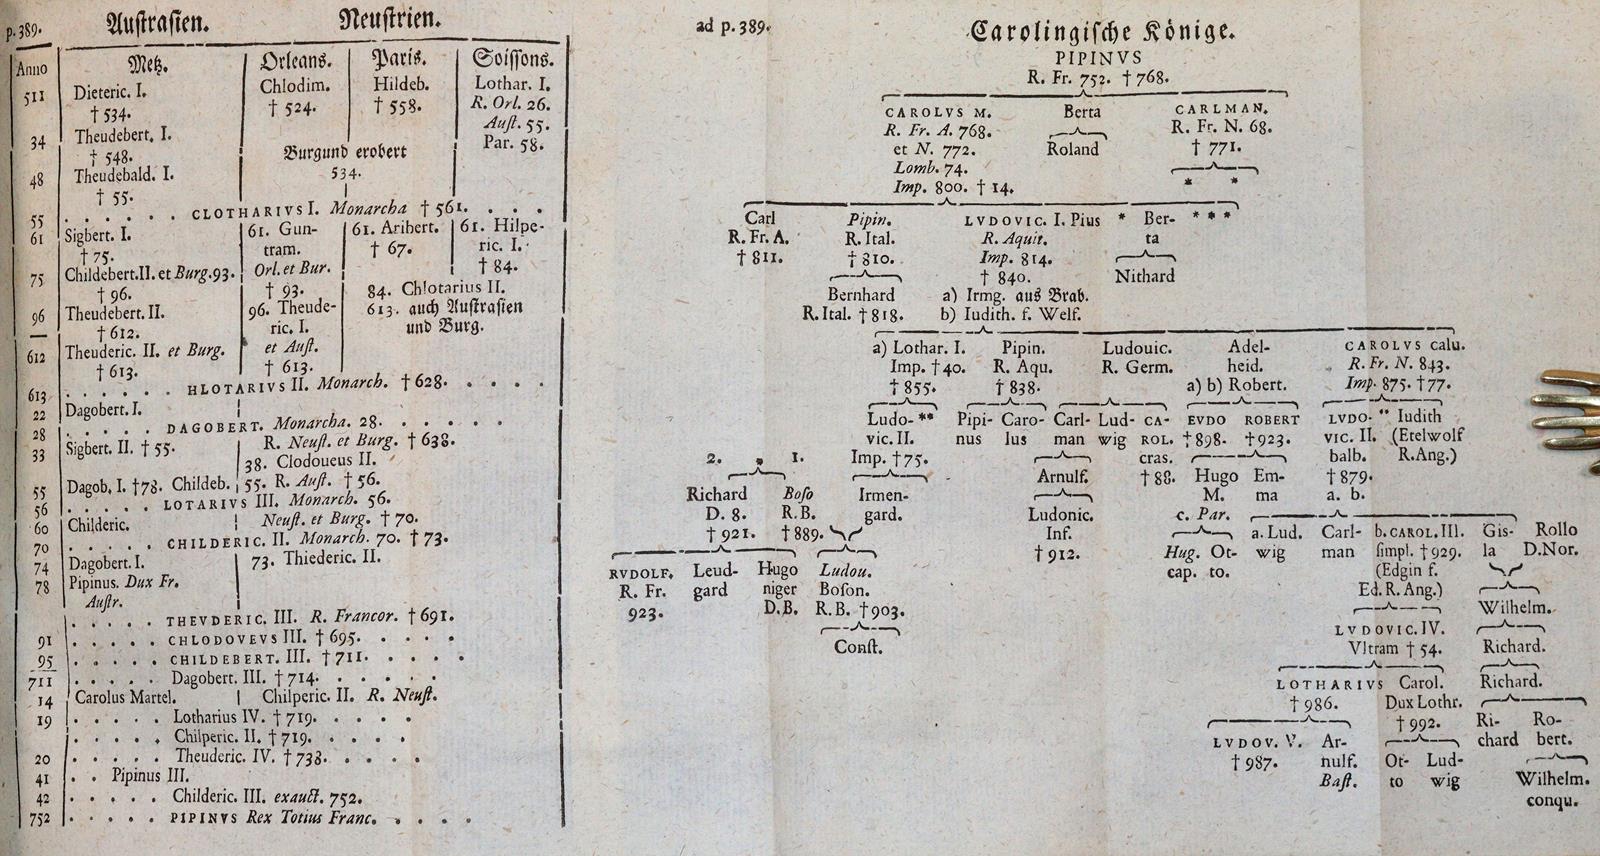 p. 389. Auſtraſien. Neuſtrien.
Anno Metz. Orleans. Paris. Soiſſons.
511 Dieteric. I. Chlodim. Hildeb. Lothar. I.
† 534. † 524. † 558. R. Orl. 26.
Auſt. 55.
34 Theudebert. I. Par. 58.
† 548. Burgund erobert
48 Theudebald. I. 534.
† 55.
55 . . . . . . CLOTHARIVS I. Monarcha † 561. . . .
61 Sigbert. I. 61. Gun- 61. Aribert. 61. Hilpe-
† 75. tram. † 67. ric. I.
75 Childebert. II. et Burg. 93. Orl. et Bur. † 84.
† 96. † 93. 84. Chlotarius II.
96 Theudebert. II. 96. Theude- 613. auch Auſtraſien
† 612. ric. I. und Burg.
612 Theuderic. II. et Burg. et Auſt.
† 613. † 613.
613 . . . . . . HLOTARIVS II. Monarch. † 628. . . . .
22 Dagobert. I.
28 . . . . . DAGOBERT. Monarcha. 28. . . . . .
33 Sigbert. II. † 55. R. Neuſt. et Burg. † 638.
38. Clodoueus II.
55 Dagob. I. † 78. Childeb. 55. R. Auſt. † 56.
56 . . . . . LOTARIVS III. Monarch. 56.
60 Childeric. Neuſt. et Burg. † 70.
70 . . . . . CHILDERIC. II. Monarch. 70. † 73.
74 Dagobert. I. 73. Thiederic. II.
78 Pipinus. Dux Fr.
Auſtr.
. . . . . THEVDERIC. III. R. Francor. † 691.
91 . . . . . CHLODOVEVS III. † 695. . . . .
95 . . . . . CHILDEBERT. III. † 711. . . . .
711 . . . . . Dagobert. III. † 714. . . . . .
14 Carolus Martel. Chilperic. II. R. Neuſt.
19 . . . . . Lotharius IV. † 719. . . . .
. . . . . Chilperic. II. † 719. . . . .
20 . . . . . Theuderic. IV. † 738. . . . .
41 . . Pipinus III.
42 . . . . . Childeric. III. exauct. 752.
752 . . . . . PIPINVS Rex Totius Franc. . . . .
ad p. 389. Carolingiſche Könige.
PIPINVS
R. Fr. 752. † 768.
CAROLVS M. Berta CARLMAN.
R. Fr. A. 768. R. Fr. N. 68.
et N. 772. Roland † 771.
Lomb. 74.
Imp. 800. † 14. * *
Carl Pipin. LVDOVIC. I. Pius * Ber- * * *
R. Fr. A. R. Ital. R. Aquit. ta
† 811. † 810. Imp. 814.
† 840. Nithard
Bernhard a) Irmg. aus Brab.
R. Ital. † 818. b) Iudith. f. Welf.
a) Lothar. I. Pipin. Ludouic. Adel- CAROLVS calu.
Imp. † 40. R. Aqu. R. Germ. heid. R. Fr. N. 843.
† 855. † 838. a) b) Robert. Imp. 875. † 77.
Ludo- ** Pipi- Caro- Carl- Lud- CA- EVDO ROBERT LVDO- ** Iudith
vic. II. nus lus man wig ROL. † 898. † 923. VIC. II. (Etelwolf
2. 1. Imp. † 75. cras. balb. R. Ang.)
Arnulf. † 88. Hugo Em- † 879.
Richard Boſo Irmen- M. ma a. b.
D. 8. R. B. gard. Ludonic. c. Par.
† 921. † 889. Inf. a. Lud. Carl- b. CAROL. III. Gis- Rollo
† 912. Hug. Ot- wig man ſimpl. † 929. la D. Nor.
RVDOLF. Leud- Hugo Ludou. cap. to. (Edgin f.
R. Fr. gard niger Boſon. Ed. R. Ang.)
923. D. B. R. B. † 903. Wilhelm.
LVDOVIC. IV.
Conſt. Vltram † 54. Richard.
LOTHARIVS Carol. Richard.
† 986. Dux Lothr.
† 992. Ri- Ro-
LVDOV. V. Ar- chard bert.
† 987. nulf. Ot- Lud-
Baſt. to wig Wilhelm.
conqu.